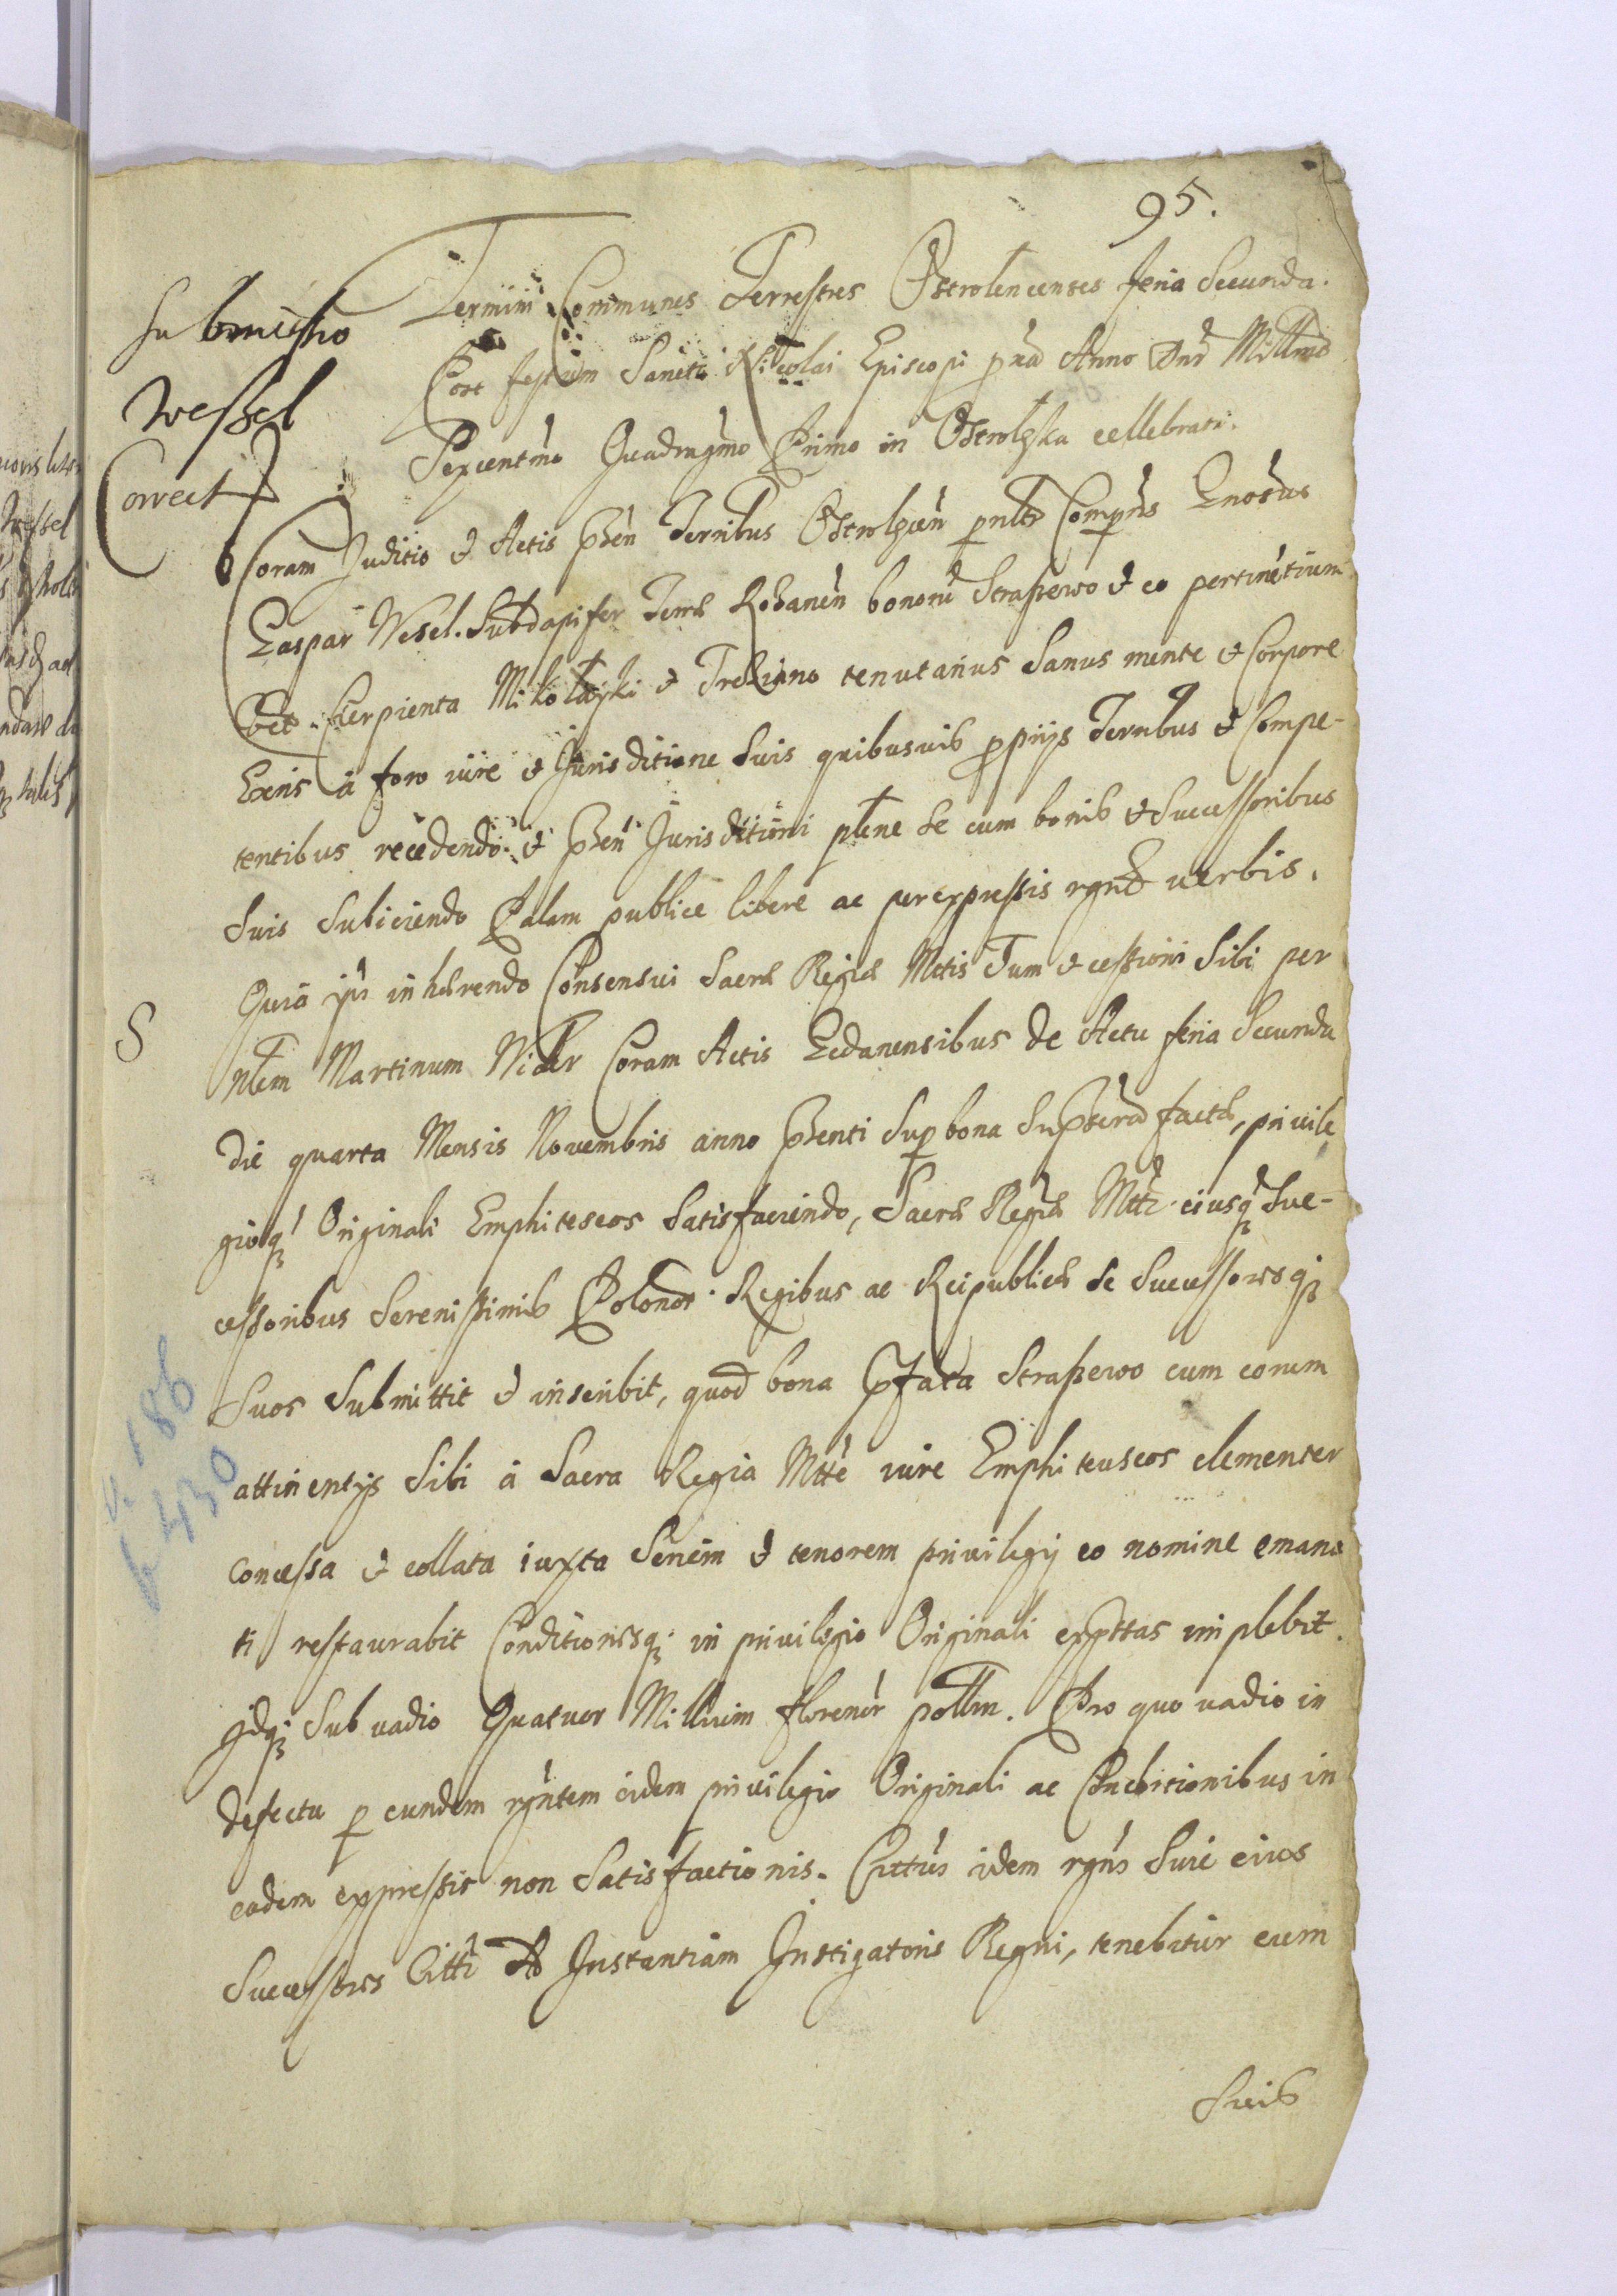 95.
Submissio
Wessel
Correct
Termini Communes Terrestres Ostrolencenses feria Secunda.
Post festum Sancti Nicolai Episcopi pña Anno Dnī Millmo
Sexcentmo Quadragmo Primo in Ostrolęka cellebrati.
Coram Juditio et Actis pñen Ternibus Ostrolęcen pnltr Compñs Gnosus
Gaspar Wesel. Subdapifer Terræ Rozanen bonorū Straszewo et eo pertinētium
Cierpienta Mikołayki et tenutarius Sanus mente et Corpore
Exñs a foro iure et Jurisditione Suis quibusuis pprijs Ternbus et Compe-
tentibus recedendo et pñen Jurisditioni plene Se cum bonis et Successoribus
Suis Subiciendo Palam publice libere ac per expressis rgnt uerbis.
Quia ipse inhærendo Consensui Sacræ Regiæ Mttis Tum et cessioni Sibi per
S
Nlem Martinum Coram Actis Gedanensibus de Actu feria Secunda
die quarta Mensis Nouembris anno pñenti Sup bona factæ, priuile
gioq Originali Emphiteseos Satisfaciendo, Sacræ Regiæ Mtti eiusq Suc-
cessoribus Serenissimis Polonor Regibus ac Reipublicæ Se Successoresq
Suos Submittit et inscribit, quod bona pfata Straszewo cum eorum
v. 186
k 430
attinentijs Sibi a Sacra Regia Mtte iure Emphiteuseos clementer
concessa et collata iuxta Seriem et tenorem priuilegij eo nomine emana
ti restaurabit Conditionesq in priuilegio Originali expssas implebit.
Idq Sub uadio Quatuor Millium florenor pollm. Pro quo uadio in
defectu p eundem rgntem eidem priuilegio Originali ac Conditionibus in
eodem expressis non Satisfactionis. Cittus idem rgns Siue eius
Successores Citti Ad Instantiam Instigatoris Regni, tenebitur cum
Suis